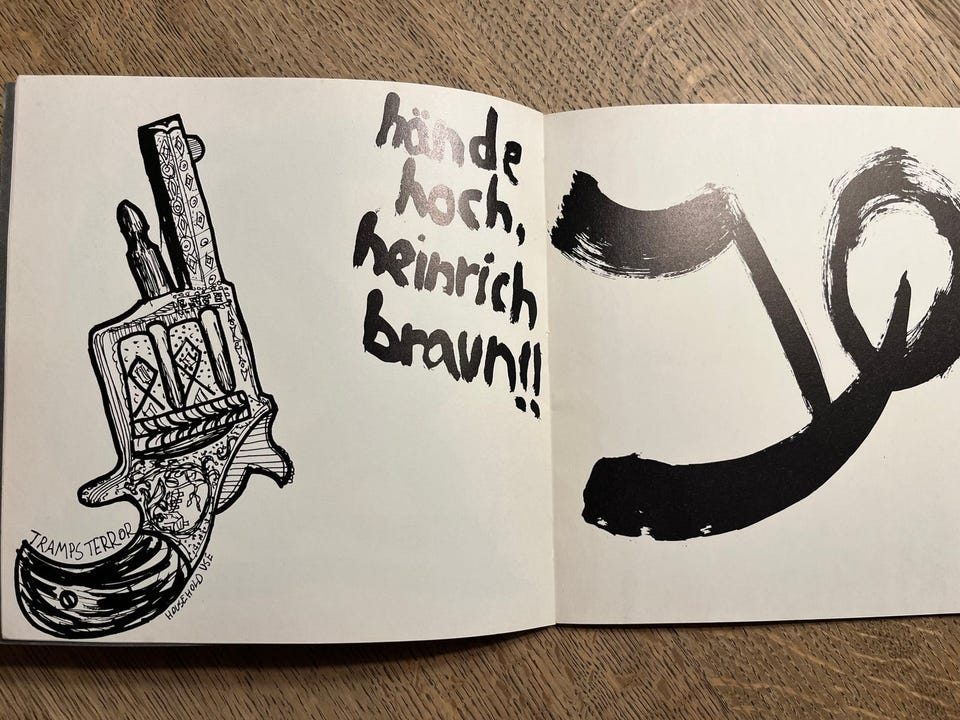 hände
hoch,
heinrich
braun!!
TRAMPS TERROR
HOUSEHOLD USE